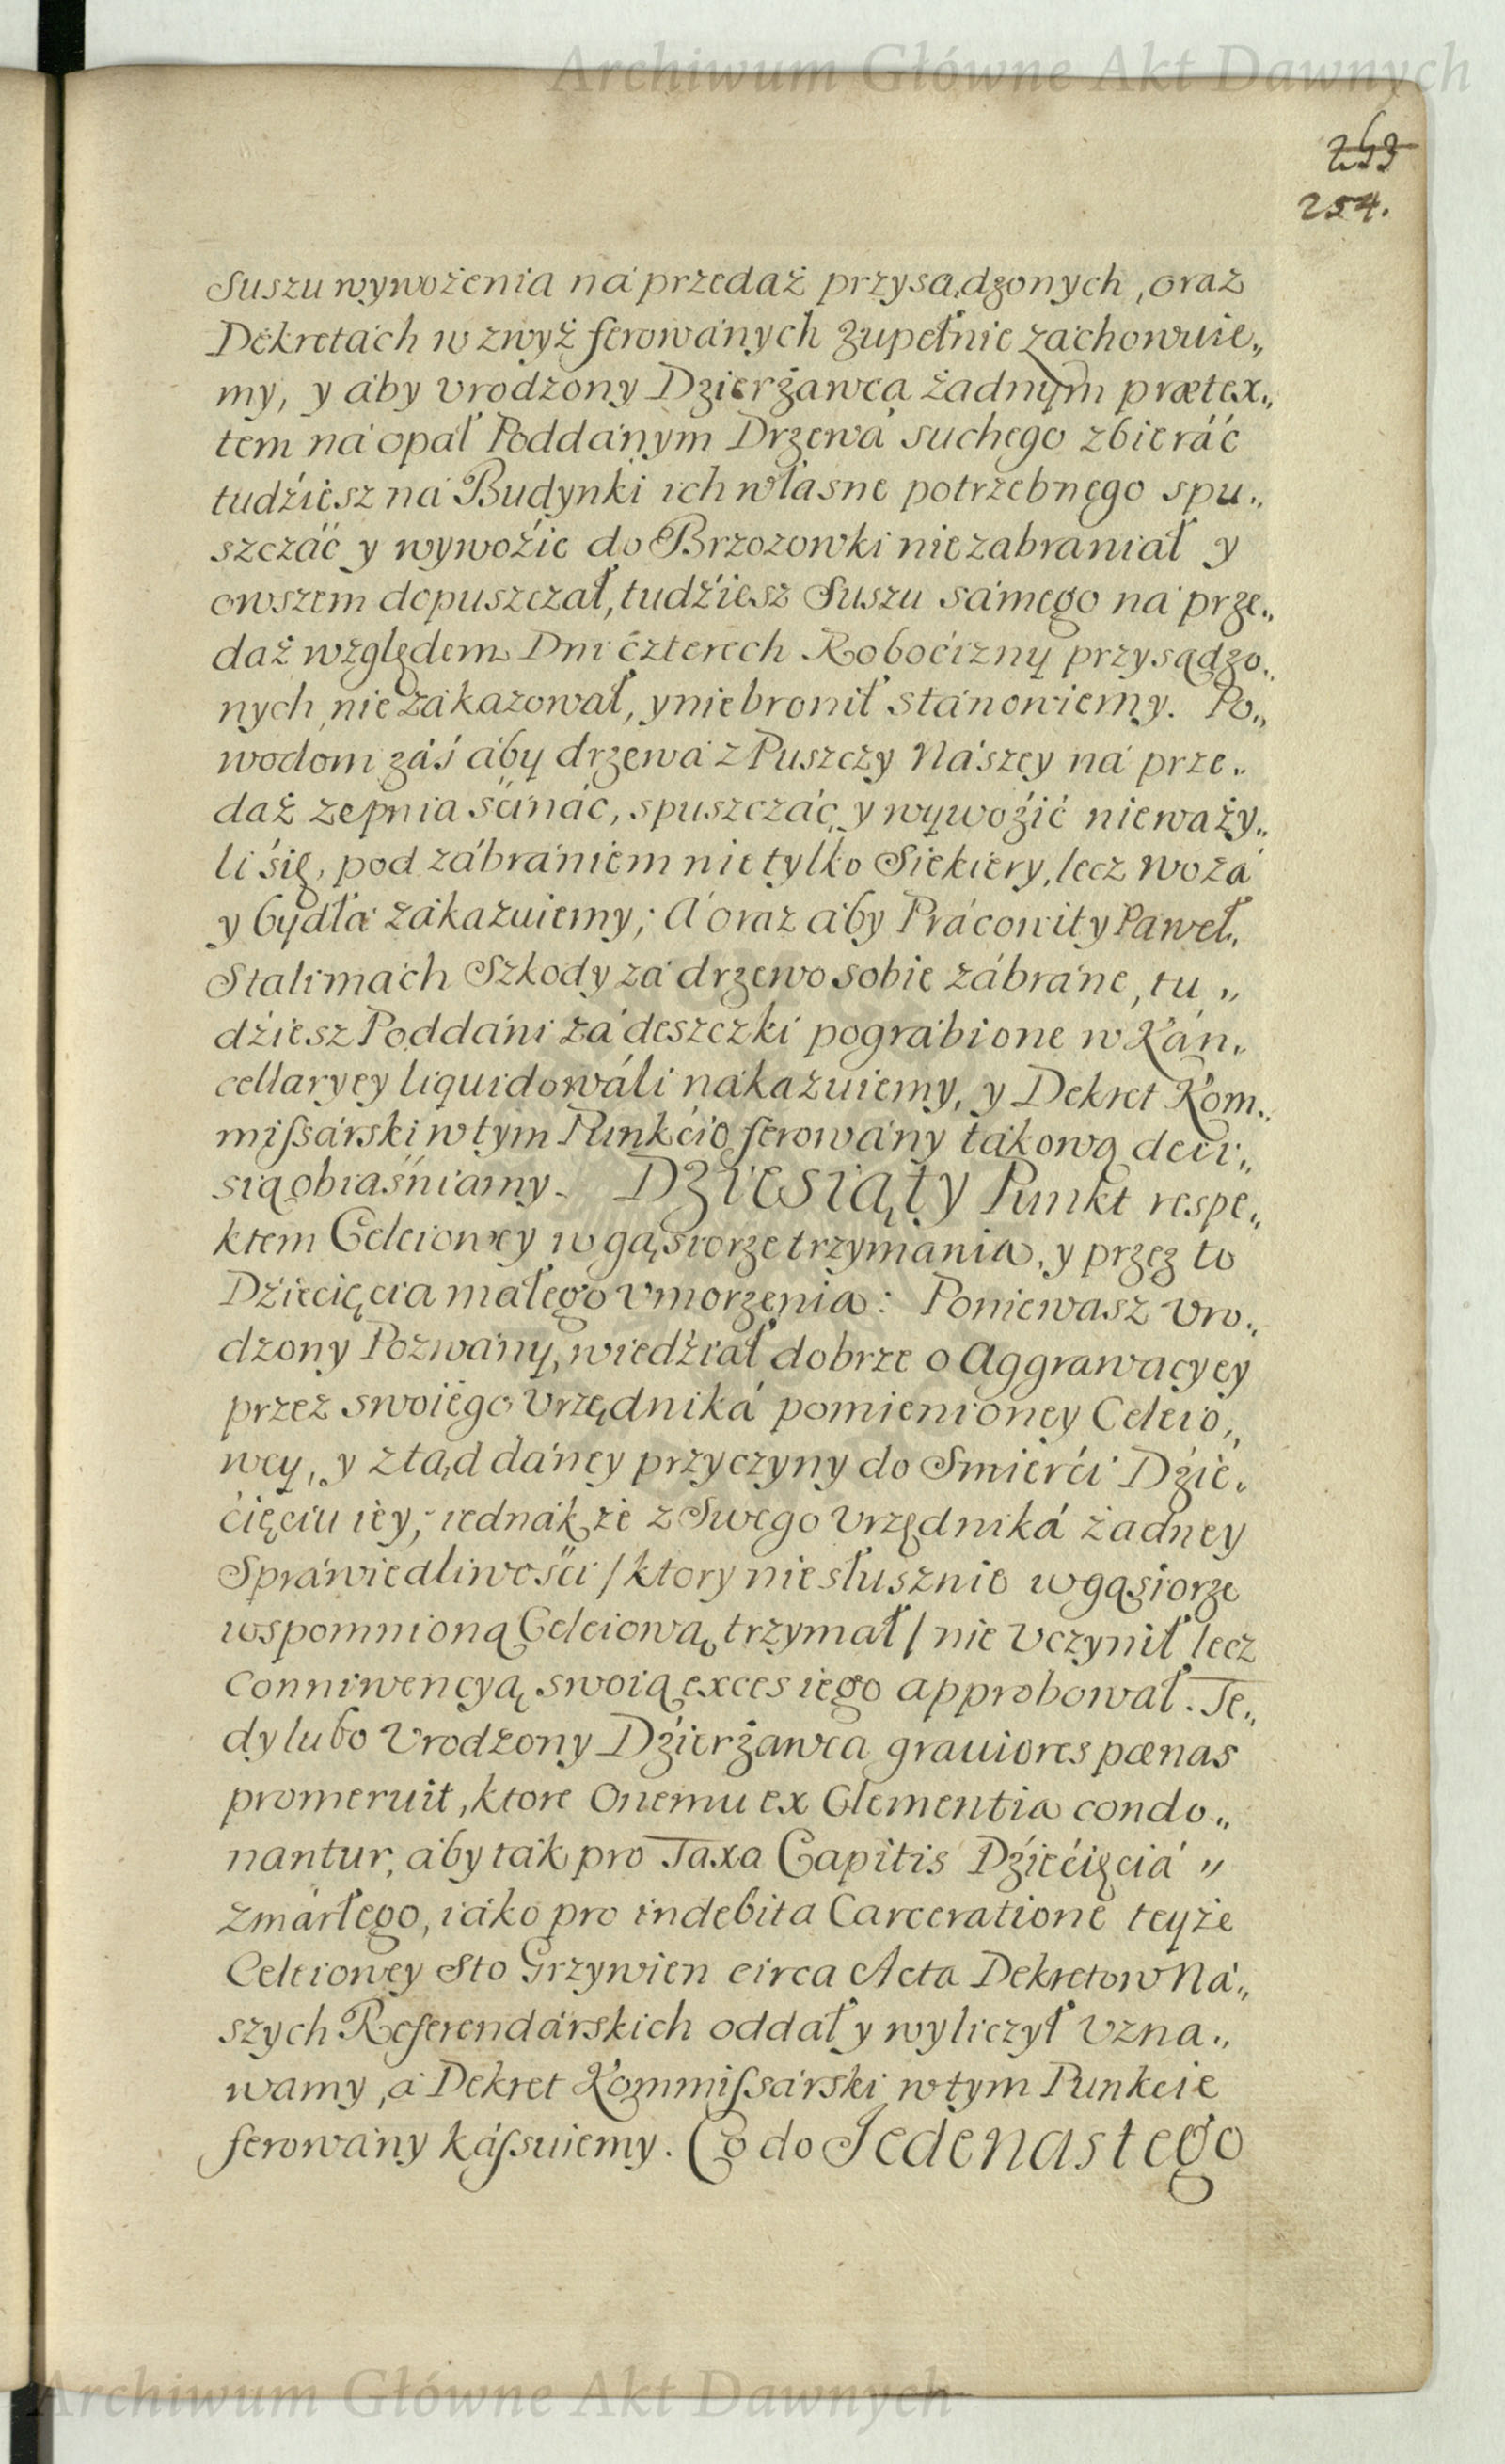 Archiwum Główne Akt Dawnych
253
254.
Suszu wywożenia na przedaż przysądzonych, oraz
Dekretách w zwyż ferowánych zupełnie záchowuie„
my, y áby Vrodzony Dzierżawca żadnym prætex„
tem ná opał Poddánym Drzewá suchego zbieráć
tudźiesz ná Budynki ich własne potrzebnego spu„
szczáć y wywoźić do Brzozowki nie zabraniał y
owszem dopuszczał, tudźiesz Suszu sámego ná prze„
daż względem Dni czterech Robocizny przysądzo„
nych nie zákazował, y nie bronił stánowiemy. Po„
wodom záś áby drzewá z Puszczy Nászey ná prze„
daż ze pnia śćináć, spuszczáć y wywoźić nie waży„
li się, pod zábrániem nie tylko Siekiery, lecz woza
y bydła zákazuiemy; A oraz áby Prácowity Páweł
Stalimách Szkody zá drzewo sobie zábráne, tu„
dźiesz Poddáni zá deszczki pográbione w Kán„
cellaryey liquidowáli nákazuiemy, y Dekret Kom„
mißárski w tym Punkcie ferowány tákową deci„
sią obiaśniamy. Dziesiąty Punkt respe„
ktem Celeiowey w gąsiorze trzymania, y przez to
Dźiecięcia małego Vmorzenia: Poniewasz Vro„
dzony Pozwány, wiedźiał dobrze o Aggrawacyey
przez swoiego Vrzędniká pomienioney Celeio„
wey, y ztąd dáney przyczyny do Smierći Dźie„
ćięciu iey, iednák że z Swego Vrzędniká żadney
Spráwiedliwośći / ktory nie słusznie w gąsiorze
wspomnioną Celeiową trzymał / nie Vczynił lecz
Conniwencyą swoią exces iego approbował. Te„
dy lubo Vrodzony Dźierżawca grauiores pœnas
promeruit, ktore Onemu ex Clementia condo„
nantur, áby tak pro Taxa Capitis Dźiećięciá „
zmárłego, iáko pro indebita Carceratione teyże
Celeiowey Sto Grzywien circa Acta Dekretow Ná„
szych Referendárskich oddał y wyliczył Vzna„
wamy, á Dekret Kommißárski w tym Punkcie
ferowány káßuiemy. Co do Jedenastego
Archiwum Główne Akt Dawnych